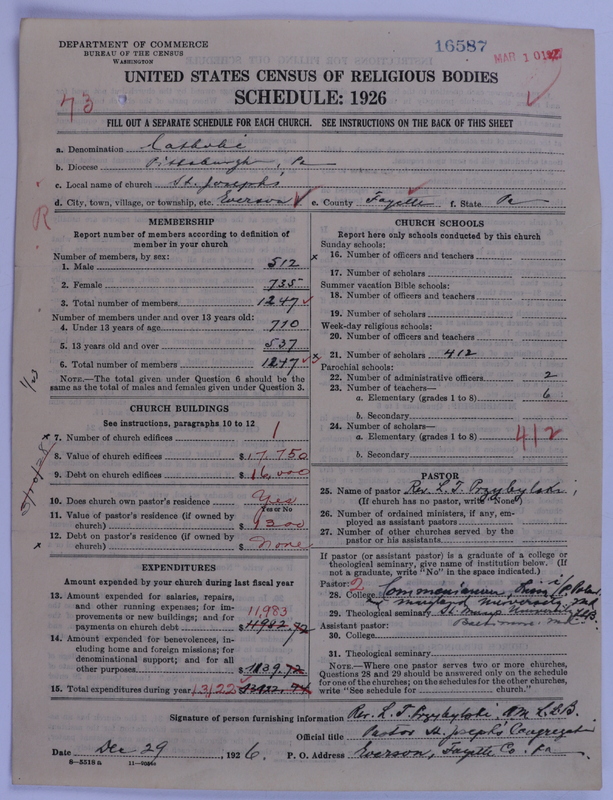 DEPARTMENT OF COMMERCE
BUREAU OF THE CENSUS
WASHINGTON
16587
MAR 10 1927
UNITED STATES CENSUS OF RELIGIOUS BODIES
SCHEDULE: 1926
73
FILL OUT A SEPARATE SCHEDULE FOR EACH CHURCH. SEE INSTRUCTIONS ON THE BACK OF THIS SHEET
a. Denomination Catholic
b. Diocese Pittsburgh, Pa
c. Local name of church St. Joseph's
d. City, town, village, or township, etc. Everson e. County Fayette f. State Pa
R
MEMBERSHIP
Report number of members according to definition of
member in your church
Number of members, by sex:
1. Male 512
2. Female 735
3. Total number of members 1247
Number of members under and over 13 years old:
4. Under 13 years of age 710
5. 13 years old and over 537
6. Total number of members 1247
NOTE.—The total given under Question 6 should be the
same as the total of males and females given under Question 3.
CHURCH BUILDINGS
See instructions, paragraphs 10 to 12
x 7. Number of church edifices 1
8. Value of church edifices $17,750
9. Debt on church edifices $16,000
10. Does church own pastor's residence Yes
Yes or No
11. Value of pastor's residence (if owned by
church) $1300
x 12. Debt on pastor's residence (if owned by
church) $None
EXPENDITURES
Amount expended by your church during last fiscal year
13. Amount expended for salaries, repairs,
and other running expenses; for im-
provements or new buildings; and for
payments on church debt 11,983
14. Amount expended for benevolences, in-
cluding home and foreign missions; for
denominational support; and for all
other purposes $1139.72
15. Total expenditures during year 13122
CHURCH SCHOOLS
Report here only schools conducted by this church
Sunday schools:
x 16. Number of officers and teachers
17. Number of scholars
Summer vacation Bible schools:
18. Number of officers and teachers
19. Number of scholars
Week-day religious schools:
20. Number of officers and teachers
x 21. Number of scholars 412
Parochial schools:
22. Number of administrative officers 2
23. Number of teachers—
a. Elementary (grades 1 to 8) 6
b. Secondary
24. Number of scholars—
a. Elementary (grades 1 to 8) 412
b. Secondary
PASTOR
25. Name of pastor Rev. L. T. Przybylski
(If church has no pastor, write "None")
26. Number of ordained ministers, if any, em-
ployed as assistant pastors
27. Number of other churches served by the
pastor or his assistants
If pastor (or assistant pastor) is a graduate of a college or
theological seminary, give name of institution below. (If
not a graduate, write "No" in the space indicated.)
Pastor: 2
28. College
Maryland University, Md
29. Theological seminary St. Mary's
Assistant pastor:
30. College
31. Theological seminary
NOTE.—Where one pastor serves two or more churches,
Questions 28 and 29 should be answered only on the schedule
for one of the churches; on the schedules for the other churches,
write "See schedule for church."
Signature of person furnishing information Rev. L. T. Przybylski,
Official title Pastor St. Joseph's Congregation
Date Dec 29, 1926. P. O. Address Everson, Fayette Co. Pa
8—5518a